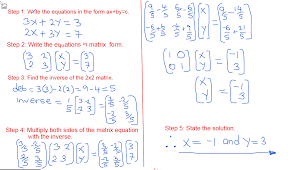 Step 1: Write the equations in the form ax+by=c.
3x + 2y = 3
2x + 3y = 7
Step 2: Write the equations in matrix form.
(3 2
2 3) (x
y) = (3
7)
Step 3: Find the inverse of the 2x2 matrix.
det = 3(3)-2(2) = 9-4 = 5
Inverse = 1/5 (3 -2
-2 3) = (3/5 -2/5
-2/5 3/5)
Step 4: Multiply both sides of the matrix equation
with the inverse.
(3/5 -2/5
-2/5 3/5) (3 2
2 3) (x
y) = (3/5 -2/5
-2/5 3/5) (3
7)
(9/5 - 4/5 6/5 - 6/5
-6/5 + 6/5 -4/5 + 9/5) (x
y) = (9/5 - 14/5
-6/5 + 21/5)
(1 0
0 1) (x
y) = (-1
3)
(x
y) = (-1
3)
Step 5: State the solution.
∴ x = -1 and y = 3